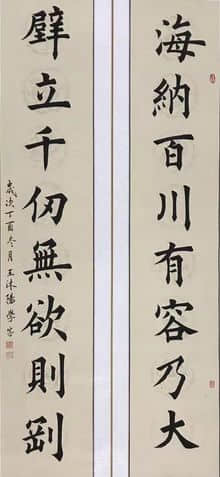 海納百川有容乃大
壁立千仞無欲則剛
歲次丁酉冬月王沐陽學書